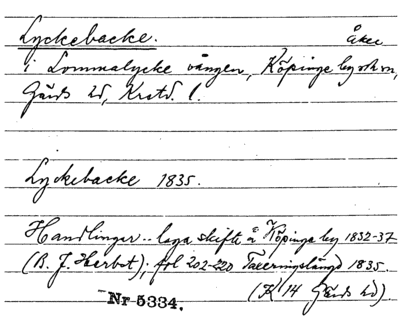 Lyckebacke. åker
i Lommalycke vången, Köpinge by och sn,
Gärds hd, Krstd. l.
Lyckebacke 1835.
Handlingar .. laga skifte å Köpinge by 1832-37
(B. J. Herbst); fol 202-220 Taxeringslängd 1835.
(K 14 Gärds hd).
Nr 5334.